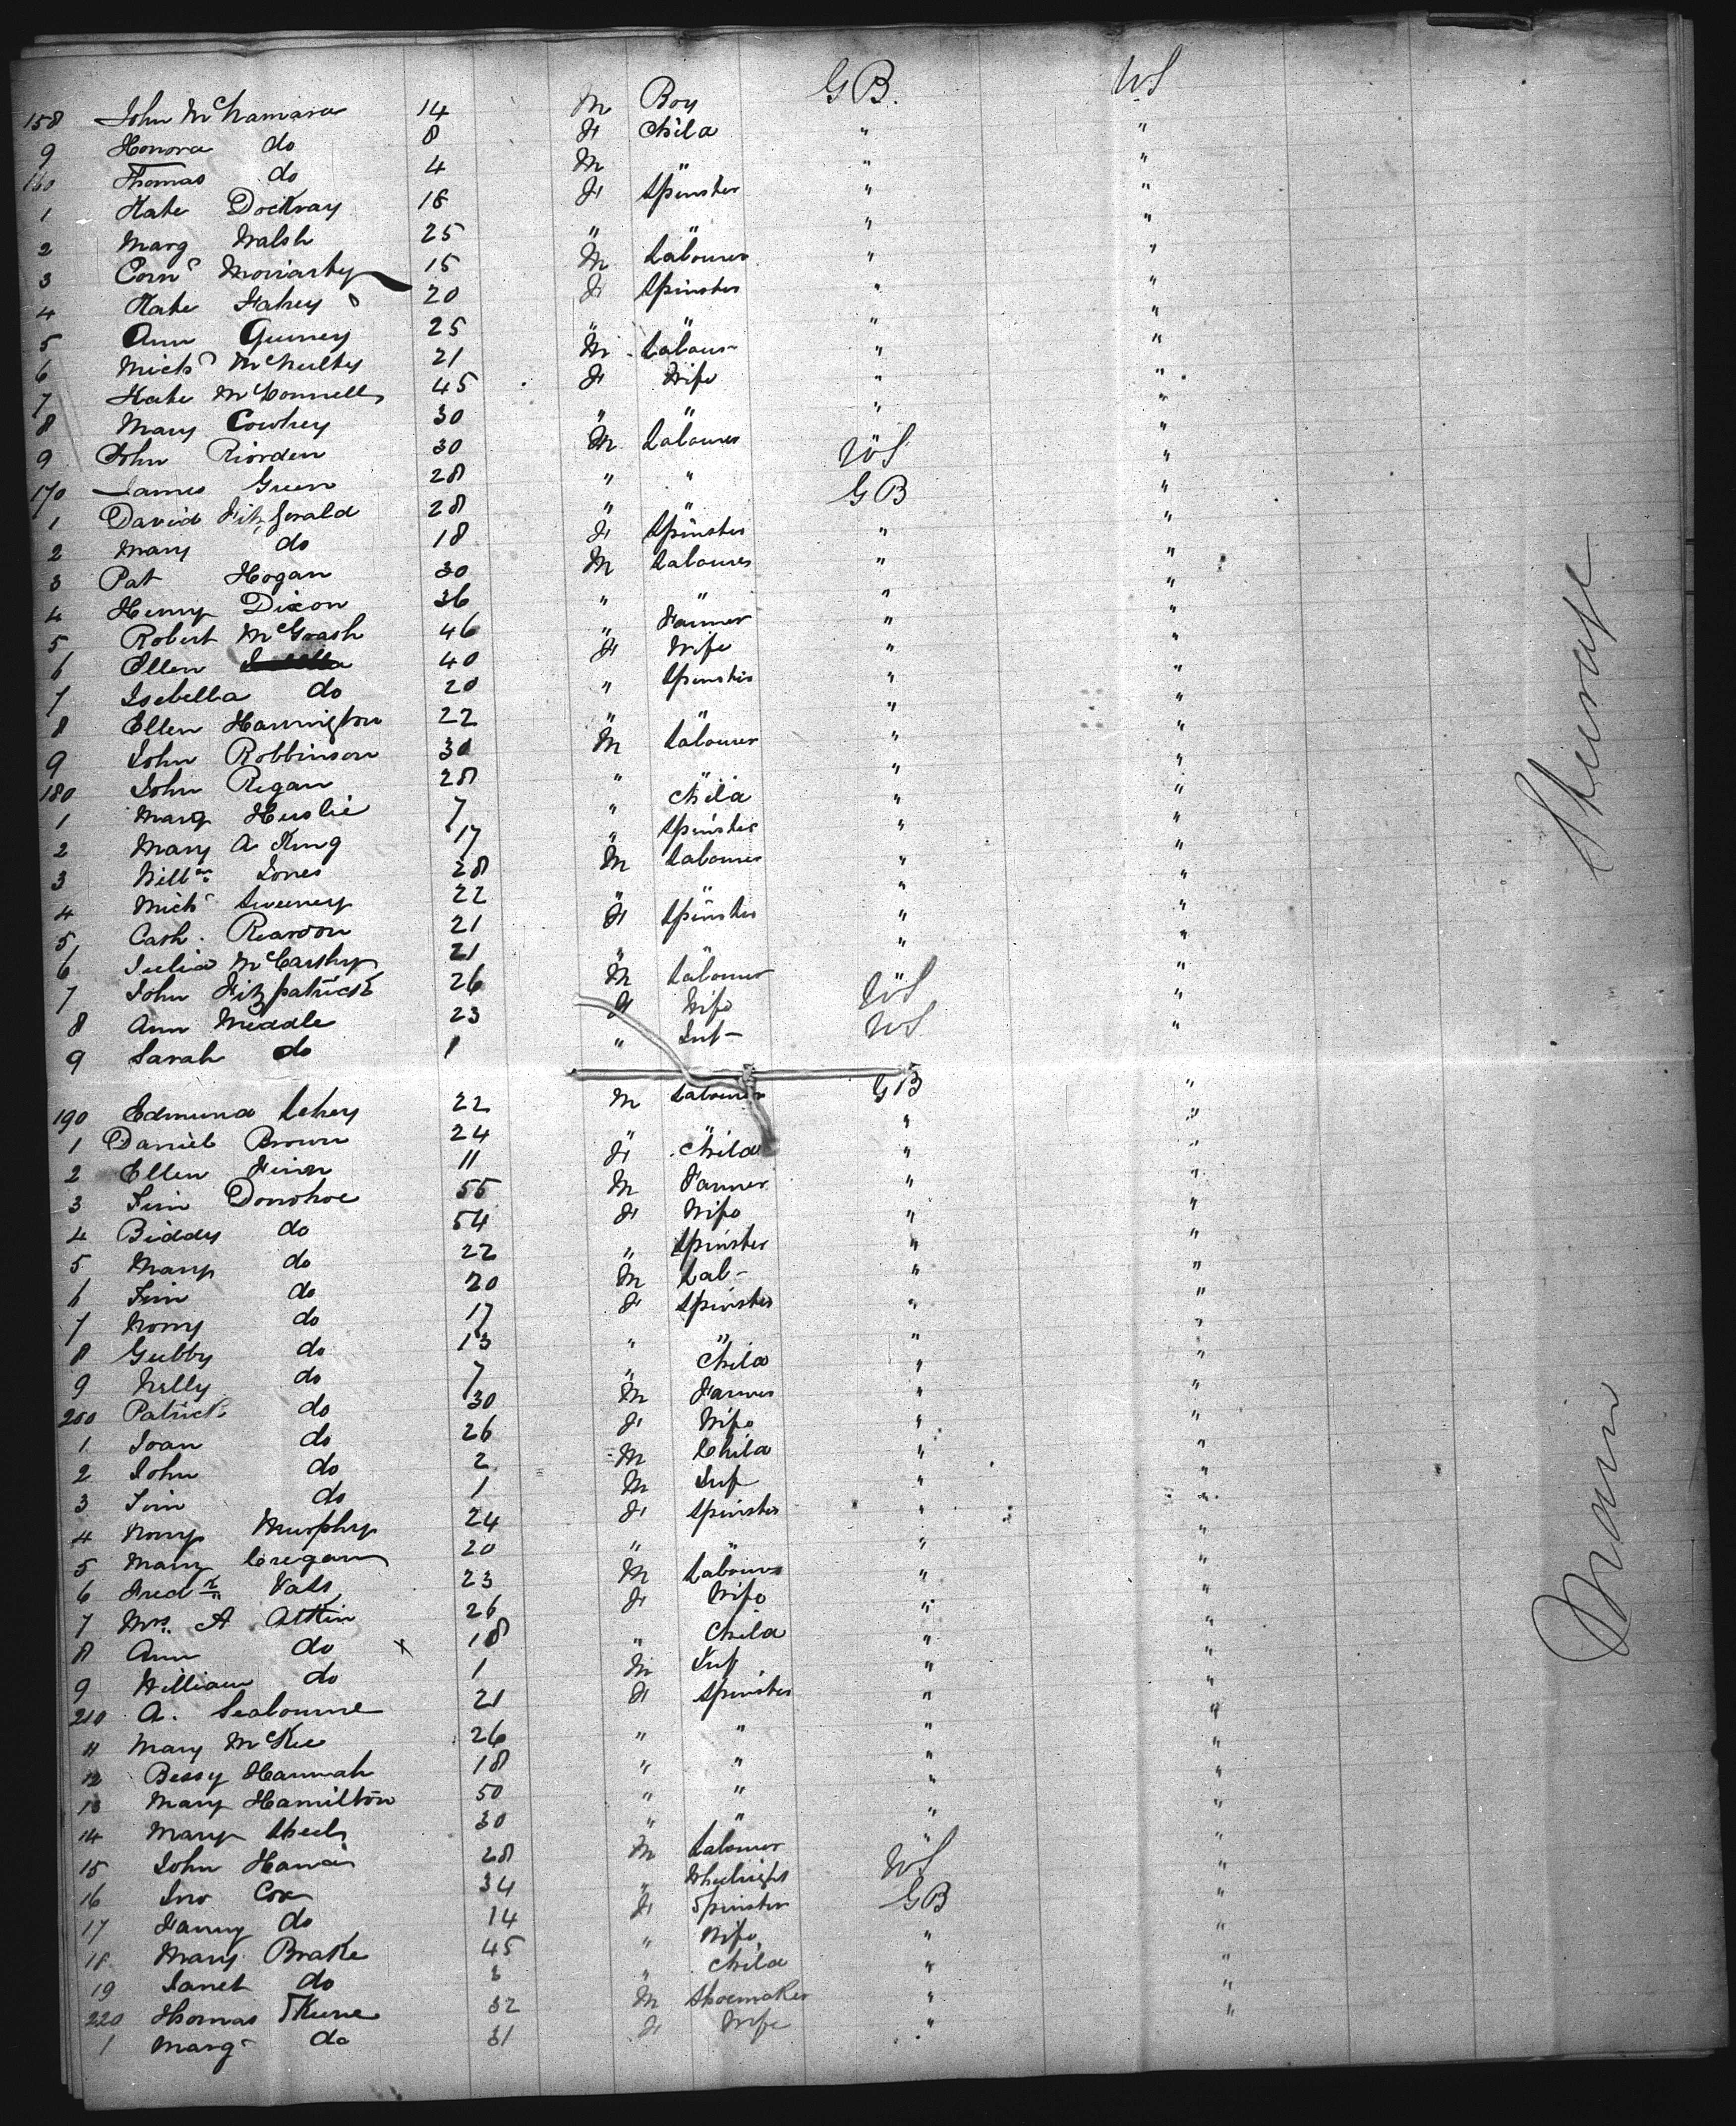 158 John McNamara 14 M Boy GB. US
9 Honora do 8 F Child " "
160 Thomas do 4 M " " "
1 Kate Dockray 18 F Spinster " "
2 Marg Walsh 25 " " " "
3 Corns Moriarty 15 M Labourer " "
4 Kate Fahey 20 F Spinster " "
5 Ann Guiney 25 " " " "
6 Michl McNulty 21 M Labour " "
7 Kate McConnell 45 F Wife " "
8 Mary Cowhey 30 " " " "
9 John Riorden 30 M Labourer US "
170 James Green 28 " " GB "
1 David Fitzgerald 28 " " " "
2 Mary do 18 F Spinster " "
3 Pat Hogan 30 M Labourer " "
4 Henry Dixon 36 " " " "
5 Robert McGrath 46 " Farmer " "
6 Ellen 40 F Wife " "
7 Isebella do 20 " Spinster " "
8 Ellen Harrington 22 " " " "
9 John Robbinson 30 M Labourer " "
180 John Regan 28 " " " "
1 Marg 7 " Child " "
2 Mary A King 17 " Spinster " "
3 Willm Jones 28 M Labourer " "
4 Michl Sweeney 22 " " " "
5 Cath. Reardon 21 F Spinster " "
6 Julia McCarthy 21 " " " "
7 John Fitzpatrick 26 M Labourer US "
8 Ann Meddle 23 F Wife US "
9 Sarah do 1 " Inf "
190 Edmund Lehey 22 M Labourer GB "
1 Daniel Brown 24 " " " "
2 Ellen Finn 11 F Child " "
3 Tim Donohoe 55 M Farmer " "
4 Biddy do 54 F Wife " "
5 Mary do 22 " Spinster " "
6 Tim do 20 M Lab " "
7 Nony do 17 F Spinster " "
8 Gubby do 13 " " " "
9 Nelly do 7 " Child " "
200 Patrick do 30 M Farmer " "
1 Joan do 26 F Wife " "
2 John do 2 M Child " "
3 Tim do 1 M Inf " "
4 Nony Murphy 24 F Spinster " "
5 Mary Cregan 20 " " " "
6 Fredk 23 M Labourer " "
7 Mrs. A Atkin 26 F Wife " "
8 Ann do x 18 " Child " "
9 William do 1 M Inf " "
210 A. Seabourne 21 F Spinster " "
11 Mary McKee 26 " " " "
12 Bessy Hannah 18 " " " "
13 Mary Hamilton 50 " " " "
14 Mary 30 " " " "
15 John 28 M Labourer US "
16 Jno Cox 34 " Wheelright GB "
17 Fanny do 14 F Spinster " "
18 Mary Brake 45 " Wife " "
19 Janet do " Child " "
220 Thomas Skene 32 M Shoemaker " "
1 Marg do 31 F Wife "
Steerage
Main